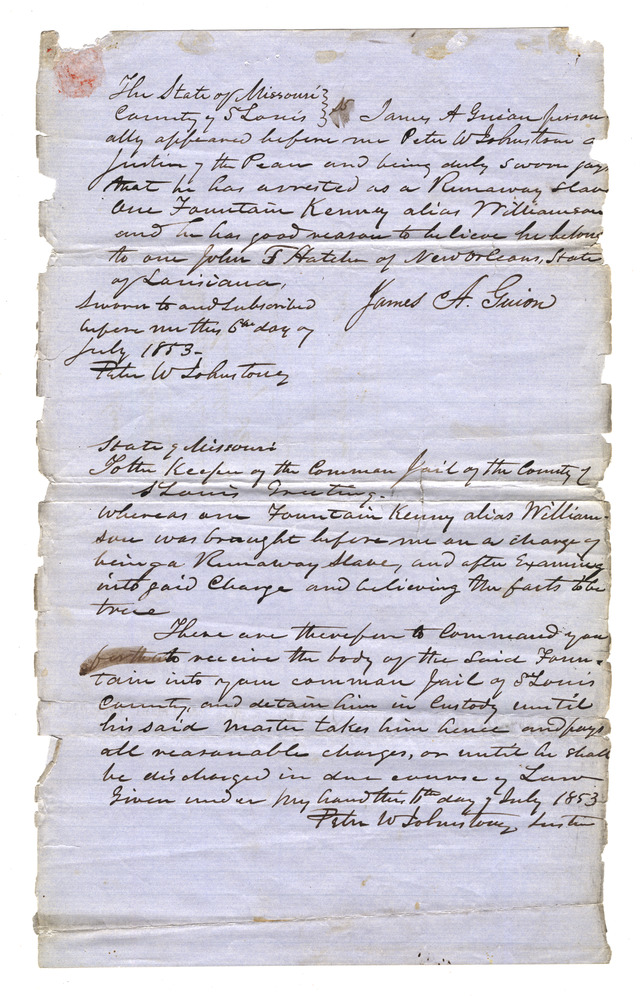 The State of Missouri
County of St Louis } ss James A Guion person
ally appeared before me Peter W Johnstone a
Justice of the Peace and being duly sworn says
that he has arrested as a Runaway Slave
One Fountain Kenney alias Williamson
and he has good reason to believe he belongs
to one John T Hatche of New Orleans, State
of Louisiana,
Sworn to and subscribed
before me this 6th day of
July 1853-
James A. Guion
Peter W Johnstone
State of Missouri
To the Keeper of the Common Jail of the County of
St Louis Greeting.
Whereas one Fountain Kenny alias William-
son was brought before me on a charge of
being a Runaway Slave, and after Examining
into said Charge and believing the facts to be
true
These are therefore to Command you
to receive the body of the said Foun-
tain into your common Jail of St Louis
County, and detain him in Custody until
his said master takes him hence and pays
all reasonable charges, or until he shall
be discharged in due course of Law
Given under my hand this 6th day of July 1853
Peter W Johnstone Justice